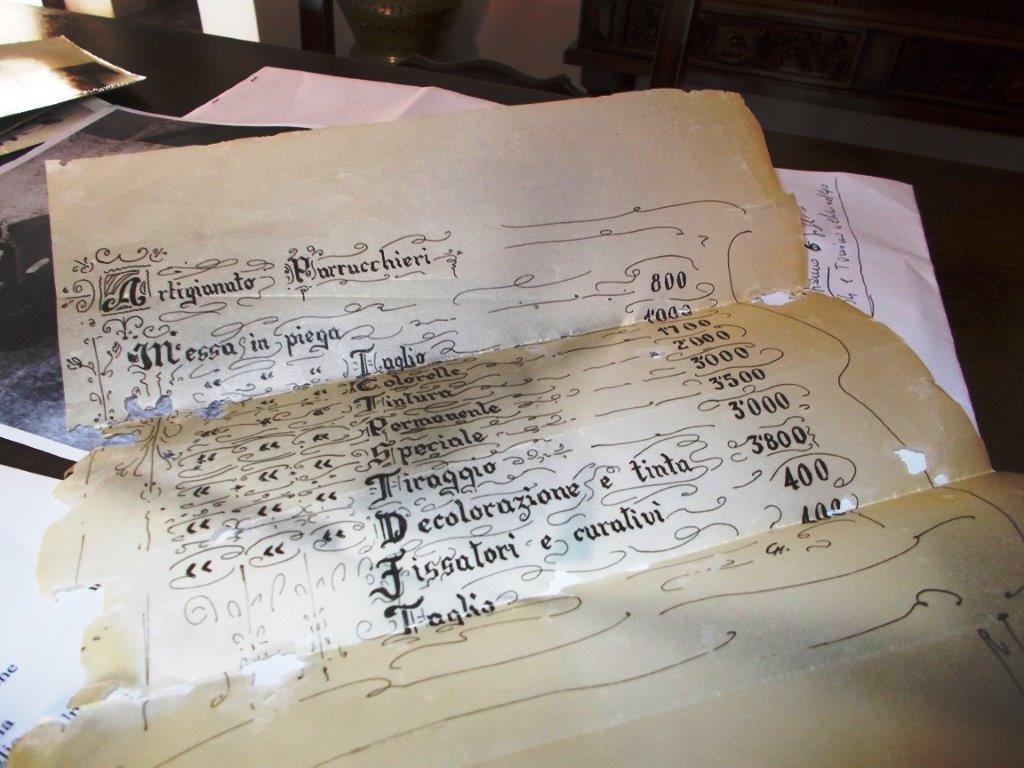 Artigianato Parrucchieri
Messa in piega 800
« « « Taglio 1'000
« « « Colorelle 1700
« « « Tintura 2'000
« « « Permanente 3'000
« « « Speciale 3500
« « « Tiraggio 3'000
« « « Decolorazione e tinta 3'800
Fissatori e curativi 400
Taglio 400